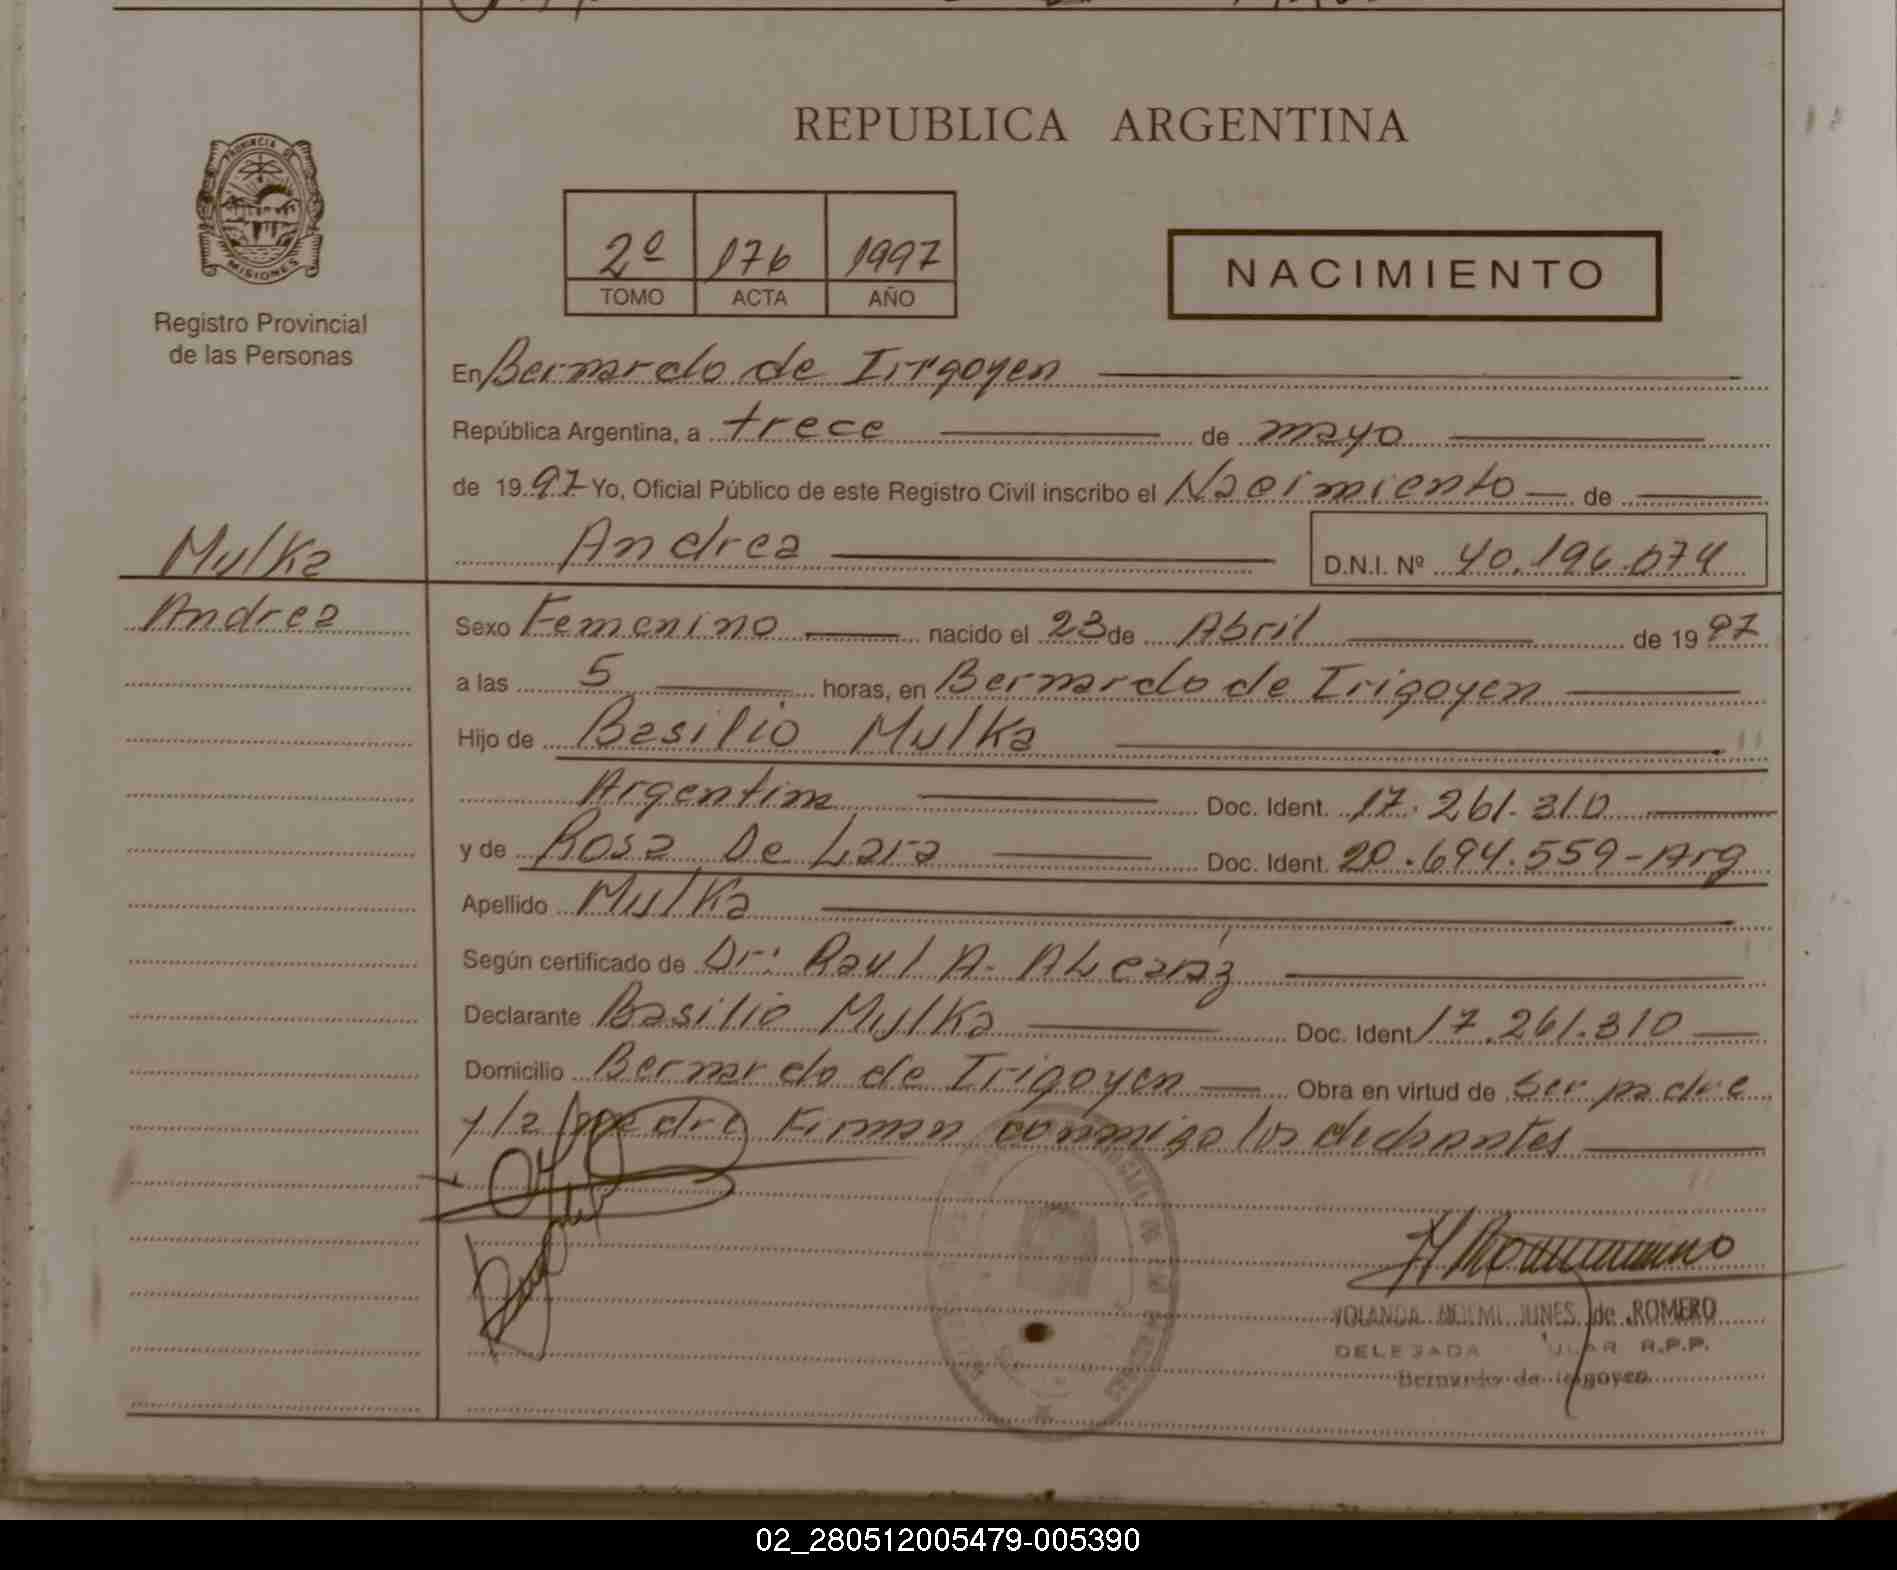 REPUBLICA ARGENTINA
PROVINCIA DE
MISIONES
Registro Provincial
de las Personas
2º 176 1997
TOMO ACTA AÑO
NACIMIENTO
En Bernardo de Irrgoyen
República Argentina, a trece de mayo
de 1997 Yo, Oficial Público de este Registro Civil inscribo el Nacimiento de
Mulka
Andrea D.N.I. Nº 40.196.074
Andrea
Sexo Femenino nacido el 23 de Abril de 1997
a las 5 horas, en Bernardo de Irigoyen
Hijo de Basilio Mulka
Argentina Doc. Ident. 17.261.310
y de Rosa De Lara Doc. Ident. 20.694.559-Arg
Apellido Mulka
Según certificado de Dr: Raul A.
Declarante Basilio Mulka Doc. Ident 17.261.310
Domicilio Bernardo de Irigoyen Obra en virtud de ser padre
y la madre Firman conmigo los declarantes
YOLANDA NOEMI JUNES de ROMERO
DELEGADA R.P.P.
Bernardo de Irigoyen
02_280512005479-005390